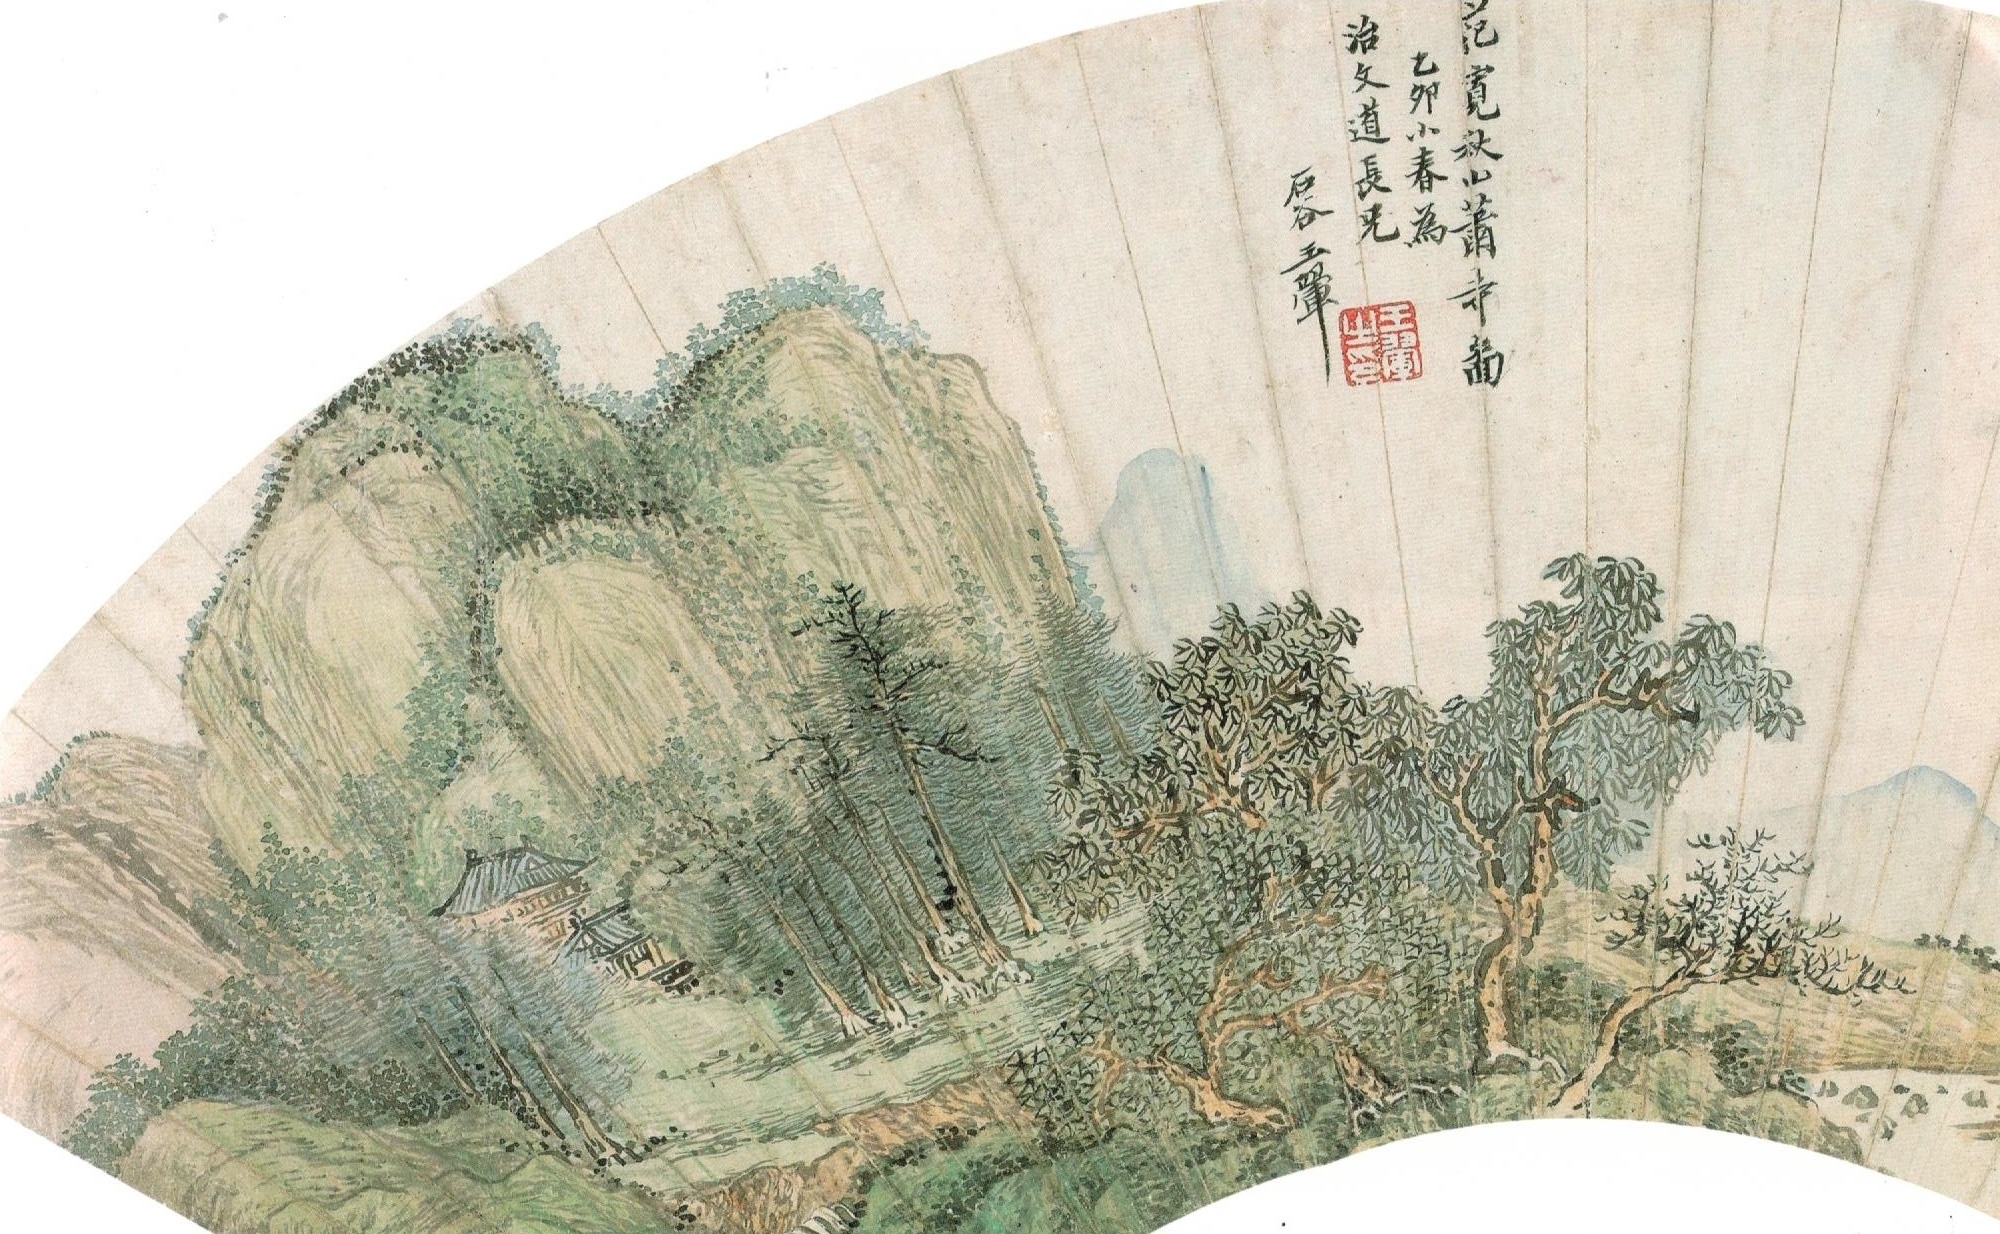 范寬秋山蕭寺圖
乙卯小春為
治文道長兄
石谷王翬
王翬之印